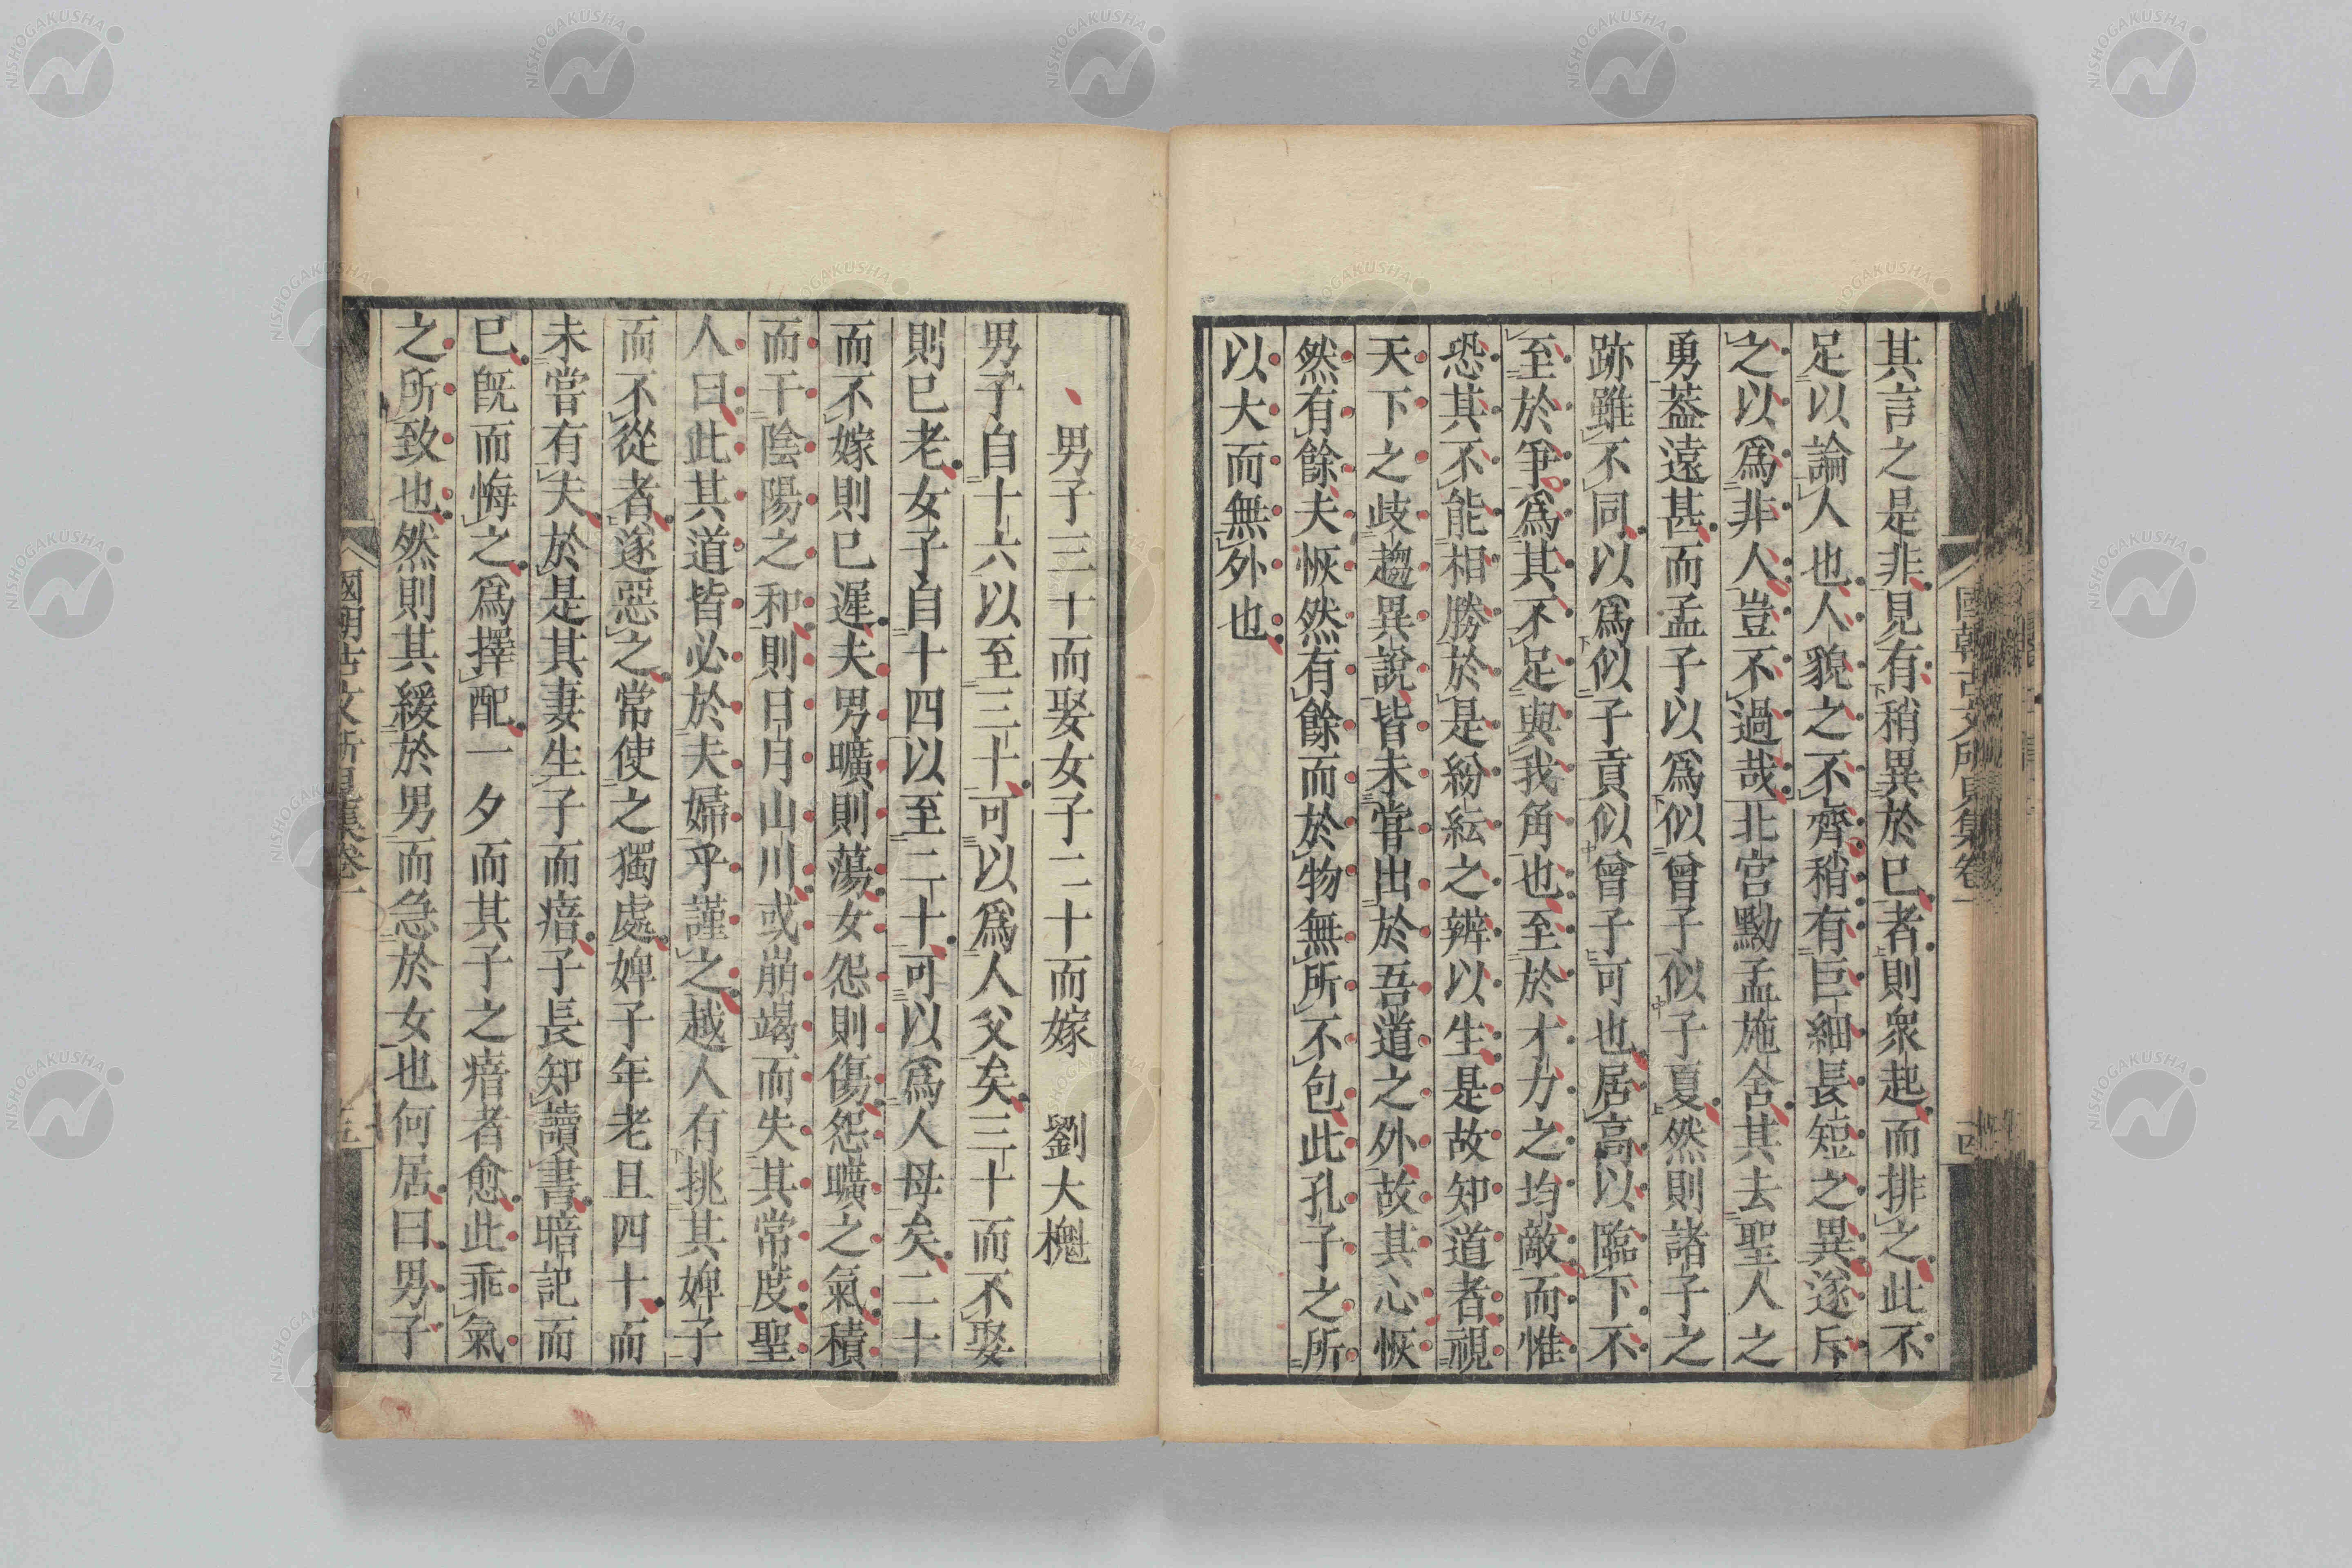 其言之是非見有稍異於已者則衆起而排之此不
足以論人也人貌之不齊稍有巨細長短之異遂斥
之以爲非人豈不過哉北宮黝孟施舍其去聖人之
勇葢遠甚而孟子以爲似曾子似子夏然則諸子之
跡雖不同以爲似子貢似曾子可也居高以臨下不
至於爭爲其不足與我角也至於才力之均敵而惟
恐其不能相勝於是紛紜之辨以生是故知道者視
天下之歧趨異說皆未嘗出於吾道之外故其心恢
然有餘夫恢然有餘而於物無所不包此孔子之所
以大而無外也
男子三十而娶女子二十而嫁 劉大櫆
男子自十六以至三十可以爲人父矣三十而不娶
則已老女子自十四以至二十可以爲人母矣二十
而不嫁則已遲夫男曠則蕩女怨則傷怨曠之氣積
而干陰陽之和則日月山川或崩竭而失其常度聖
人曰此其道皆必於夫婦乎謹之越人有挑其婢子
而不從者遂惡之常使之獨處婢子年老且四十而
未嘗有夫於是其妻生子而瘖子長知讀書暗記而
已旣而悔之爲擇配一夕而其子之瘖者愈此乖氣
之所致也然則其緩於男而急於女也何居曰男子
國朝古文所見集卷一
NISHOGAKUSHA